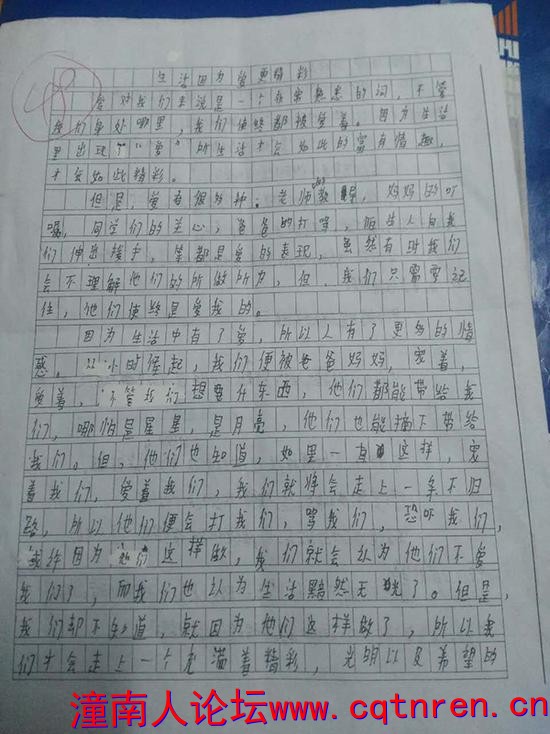 48
生活因为爱更精彩
爱对我们来说是一个非常熟悉的词，不管
我们身处哪里，我们使终都被爱着。因为生活
里出现了“爱”所生活才会如此的富有情趣，
才会如此精彩。
但是，爱有很多种。老师的教导，妈妈的叮
嘱，同学们的关心，爸爸的打骂，陌生人向我
们伸出援手，等都是爱的表现，虽然有时我们
会不理解他们的所做所为，但，我们只需要记
住，他们使终是爱我的。
因为生活中有了爱，所以人有了更多的情
感。从小时候起，我们便被爸爸妈妈，宠着，
爱着，不管我们想要什东西，他们都能带给我
们，哪怕是星星，是月亮，他们也能摘下带给
我们。但，他们也知道，如果一直这样，宠
着我们，爱着我们，我们就将会走上一条不归
路，所以他们便会打我们，骂我们，恐吓我们，
或许因为他们这样做，我们就会以为他们不爱
我们了，而我们也以为生活黯然无光了。但是，
我们却不知道，就因为他们这样做了，所以我
们才会走上一个充满着精彩，光明以及希望的
潼南人论坛www.cqtnren.cn